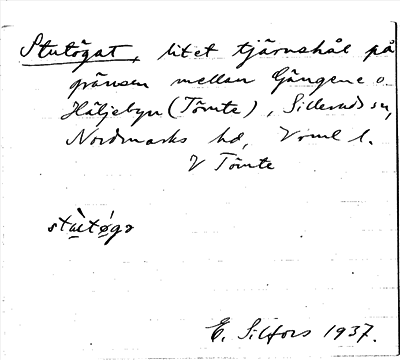 Stutögat, litet tjärnshål på
gränsen mellan Gängene o.
Häljebyn (Tömte), Sillerud sn,
Nordmarks hd, Vrml l.
V Tömte
stùtø̀gə
E. Silfors 1937.